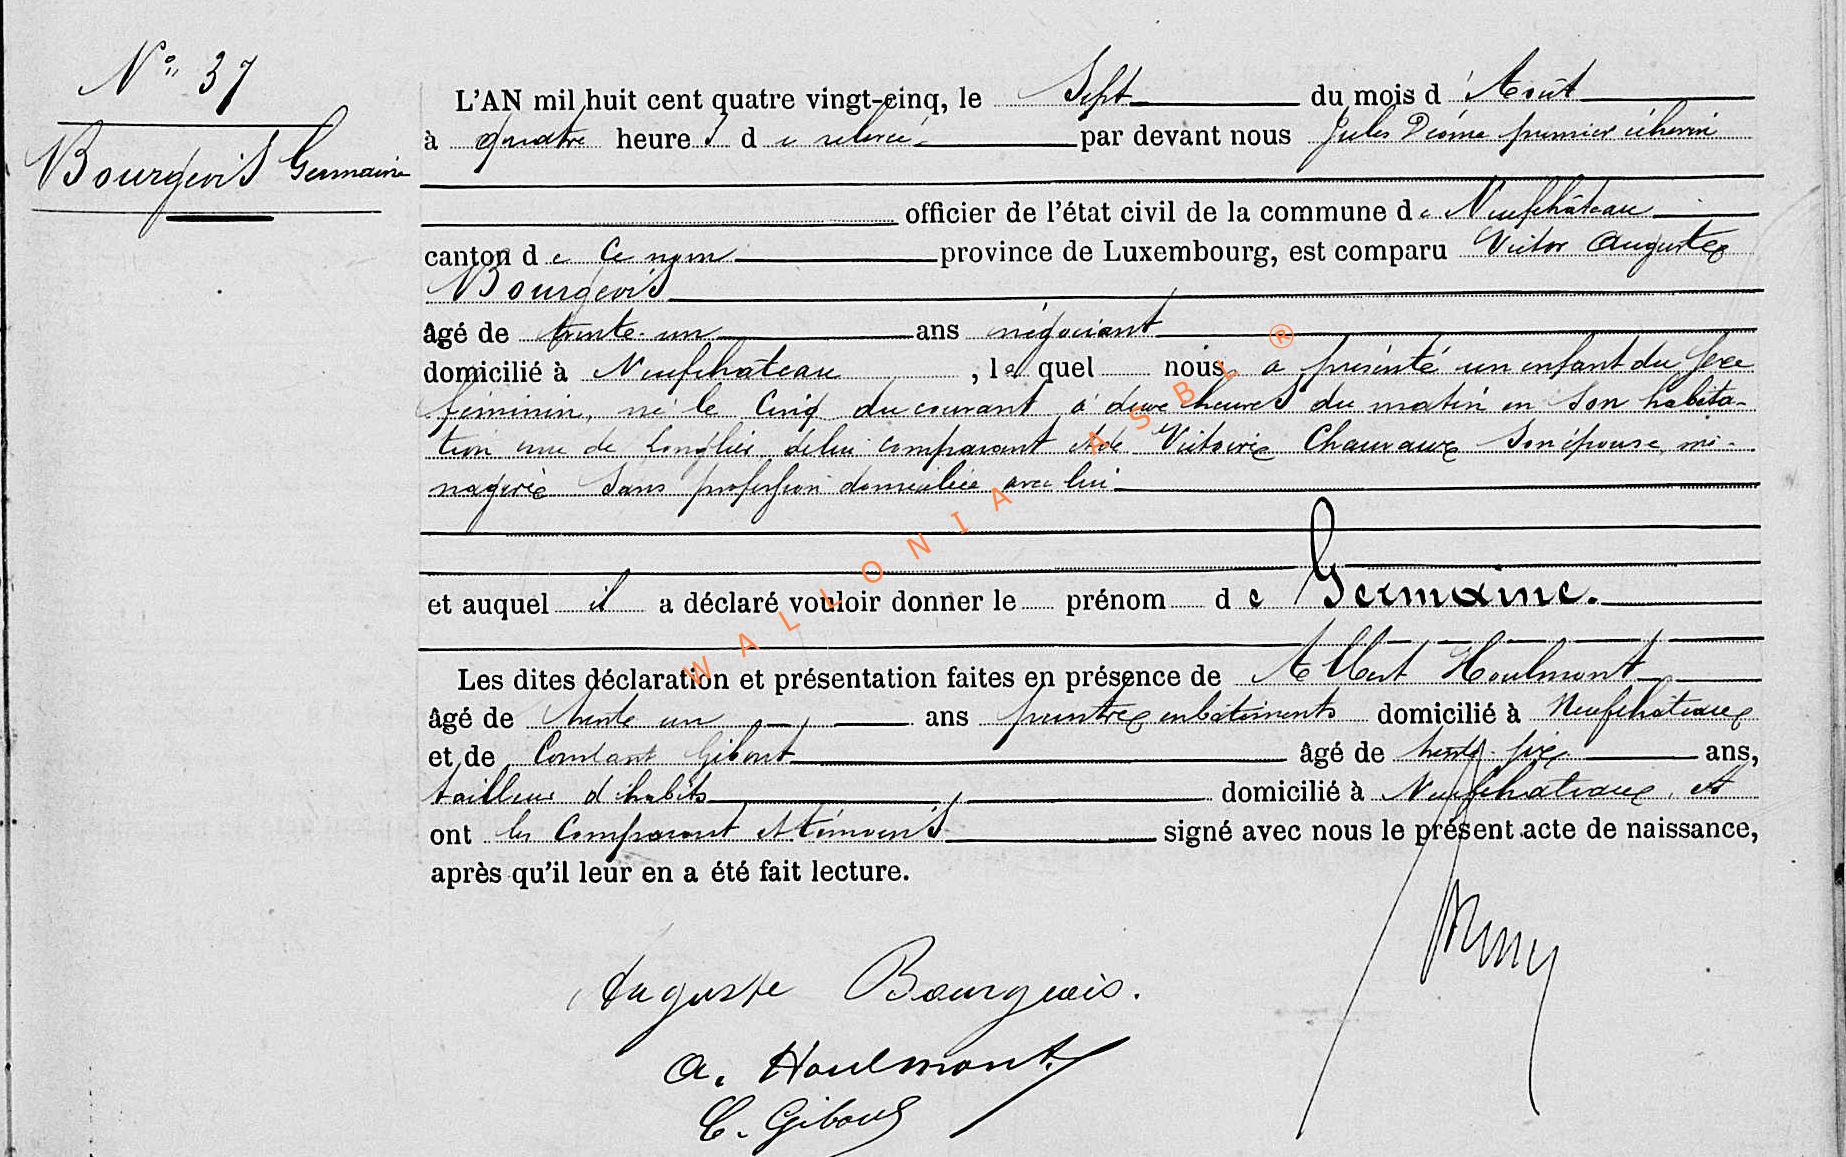 N° 37
Bourgeois Germaine
L'AN mil huit cent quatre vingt-cinq, le Sept du mois d'Août
à quatre heures de relevé par devant nous Jules premier échevin
officier de l'état civil de la commune de Neufchâteau
canton de ce nom province de Luxembourg, est comparu Victor Auguste
Bourgeois
âgé de trente-un ans négociant
domicilié à Neufchâteau, lequel nous a présenté un enfant du sexe
féminin, né le cinq du courant à deux heures du matin en son habita-
tion rue de Longlier, de lui comparant et de Victoire Chauvaux son épouse, mé-
nagère sans profession domiciliée avec lui
et auquel il a déclaré vouloir donner le prénom de Germaine.
Les dites déclaration et présentation faites en présence de Albert Houlmont
âgé de trente un ans peintre en bâtiments domicilié à Neufchâteau
et de Constant Gibout âgé de trente-six ans,
tailleur d'habits domicilié à Neufchâteau et
ont les comparant et témoins signé avec nous le présent acte de naissance,
après qu'il leur en a été fait lecture.
Auguste Bourgeois.
A. Houlmont
C. Gibout
WALLONIA ASBL ®